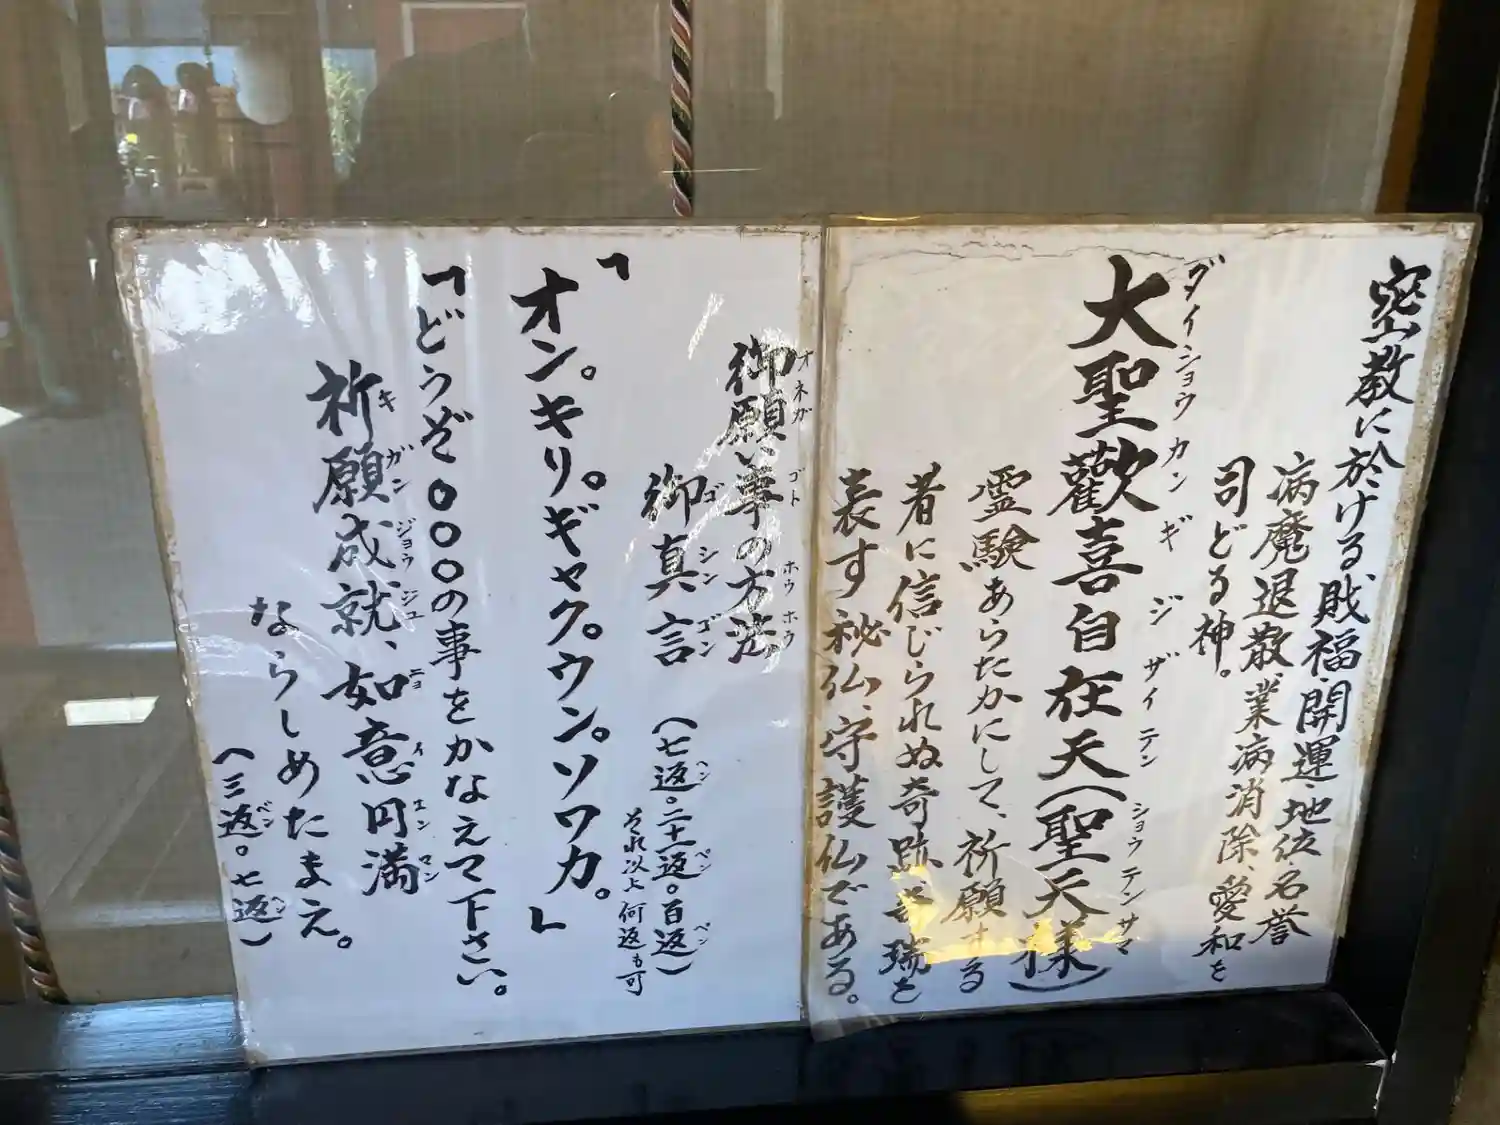 密教に於ける財福、開運、地位、名誉
病魔退散、業病消除、愛和を
司どる神。
ダイショウカンギジザイテン ショウテンサマ
大聖歡喜自在天(聖天様)
霊験あらたかにして、祈願する
者に信じられぬ奇跡、吉瑞を
表す秘仏、守護仏である。
オネガ ゴト ホウホウ
御願い事の方法
ゴシンゴン ヘン ペン ペン
御真言 (七返。二十一返。百返)
それ以上何返も可
「オン。キリ。ギャク。ウン。ソワカ。」
「どうぞ〇〇〇〇の事をかなえて下さい。
キガンジョウジュ ニョイエンマン
祈願成就、如意円満
ならしめたまえ。
ベン ヘン
(三返。七返)